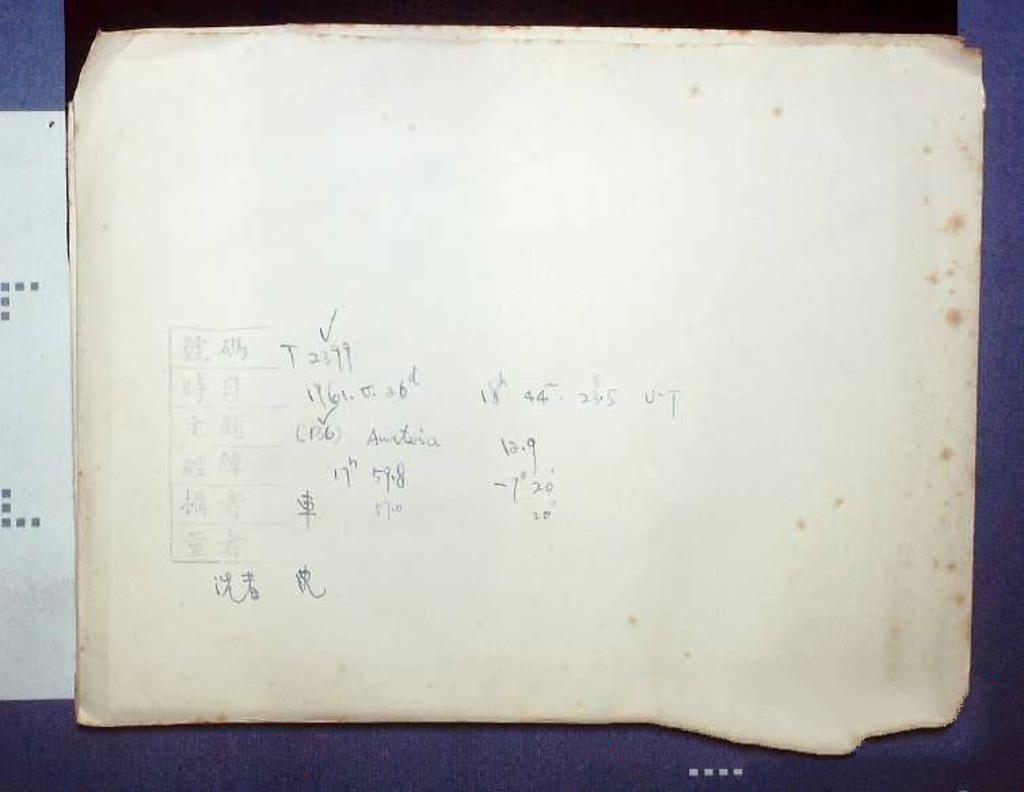 號碼 T 2399
時日 1961. 5. 26ᵈ 18ʰ 44ᵐ 23ˢ.5 U-T
主題 (136) Austria 12.9
經緯 17ʰ 59.8 -7° 20'
攝者 車 57.0 20'
量者
洗者